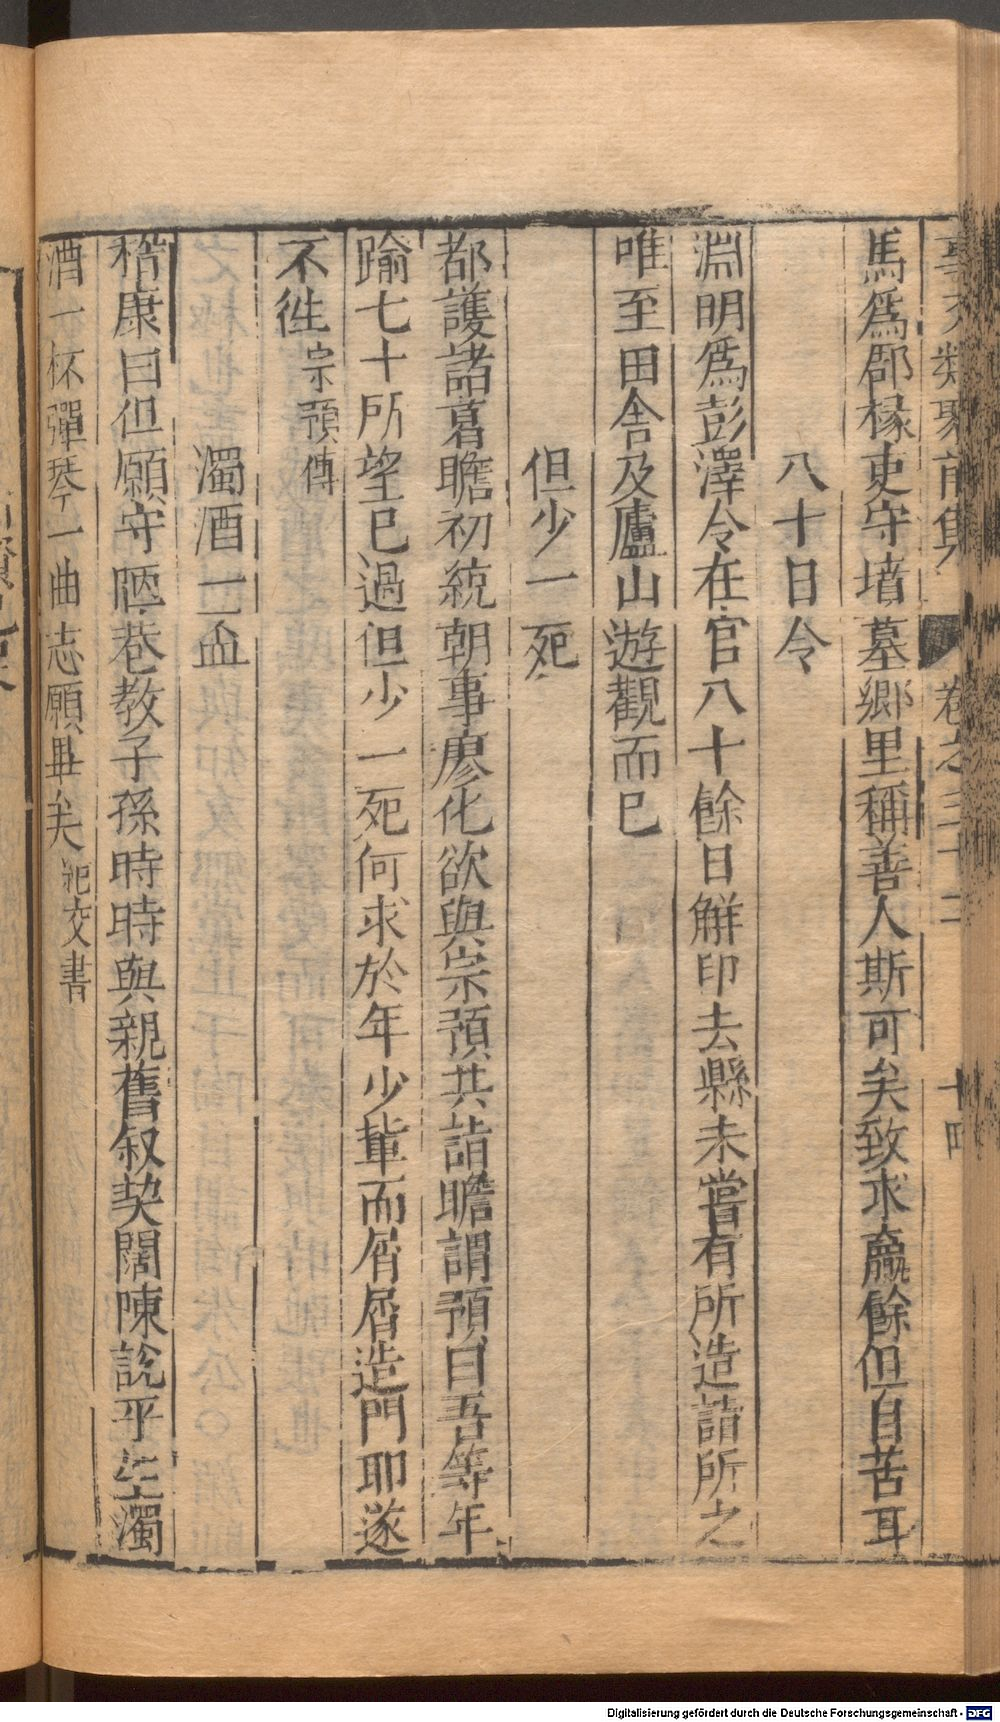 事文類聚前集 卷之三十二 十四
馬爲郡椽吏守墳墓鄉里稱善人斯可矣致求贏餘但自苦耳
八十日令
淵明爲彭澤令在官八十餘日觧印去縣未嘗有所造詣所之
唯至田舍及廬山遊觀而已
但少一死
都護諸葛瞻初統朝事廖化欲與宗預共詣瞻謂預曰吾等年
踰七十所望已過但少一死何求於年少輩而屑屑造門耶遂
不徃宗預傳
濁酒一
嵇康曰但願守陋巷教子孫時時與親舊叙契闊陳說平生濁
酒一杯彈琴一曲志願畢矣 交書
Digitalisierung gefördert durch die Deutsche Forschungsgemeinschaft - DFG